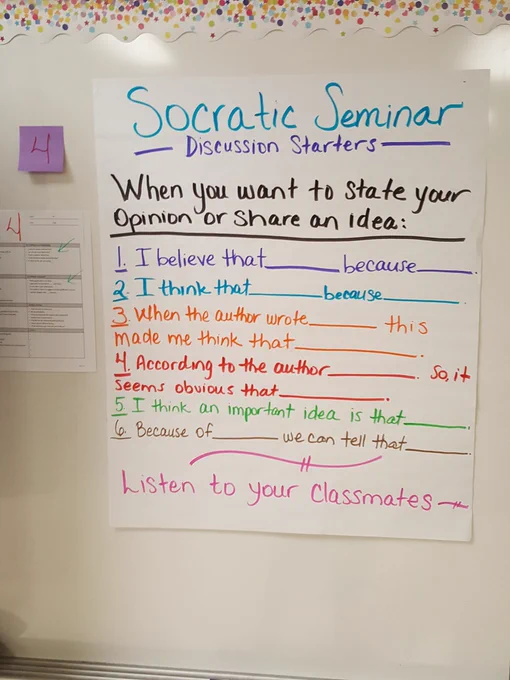 Socratic Seminar
Discussion Starters
When you want to state your
Opinion or share an idea:
1. I believe that______because______.
2. I think that______because______.
3. When the author wrote______ this
made me think that______.
4. According to the author______. So, it
seems obvious that______.
5. I think an important idea is that______.
6. Because of______ we can tell that______.
Listen to your classmates
4
4